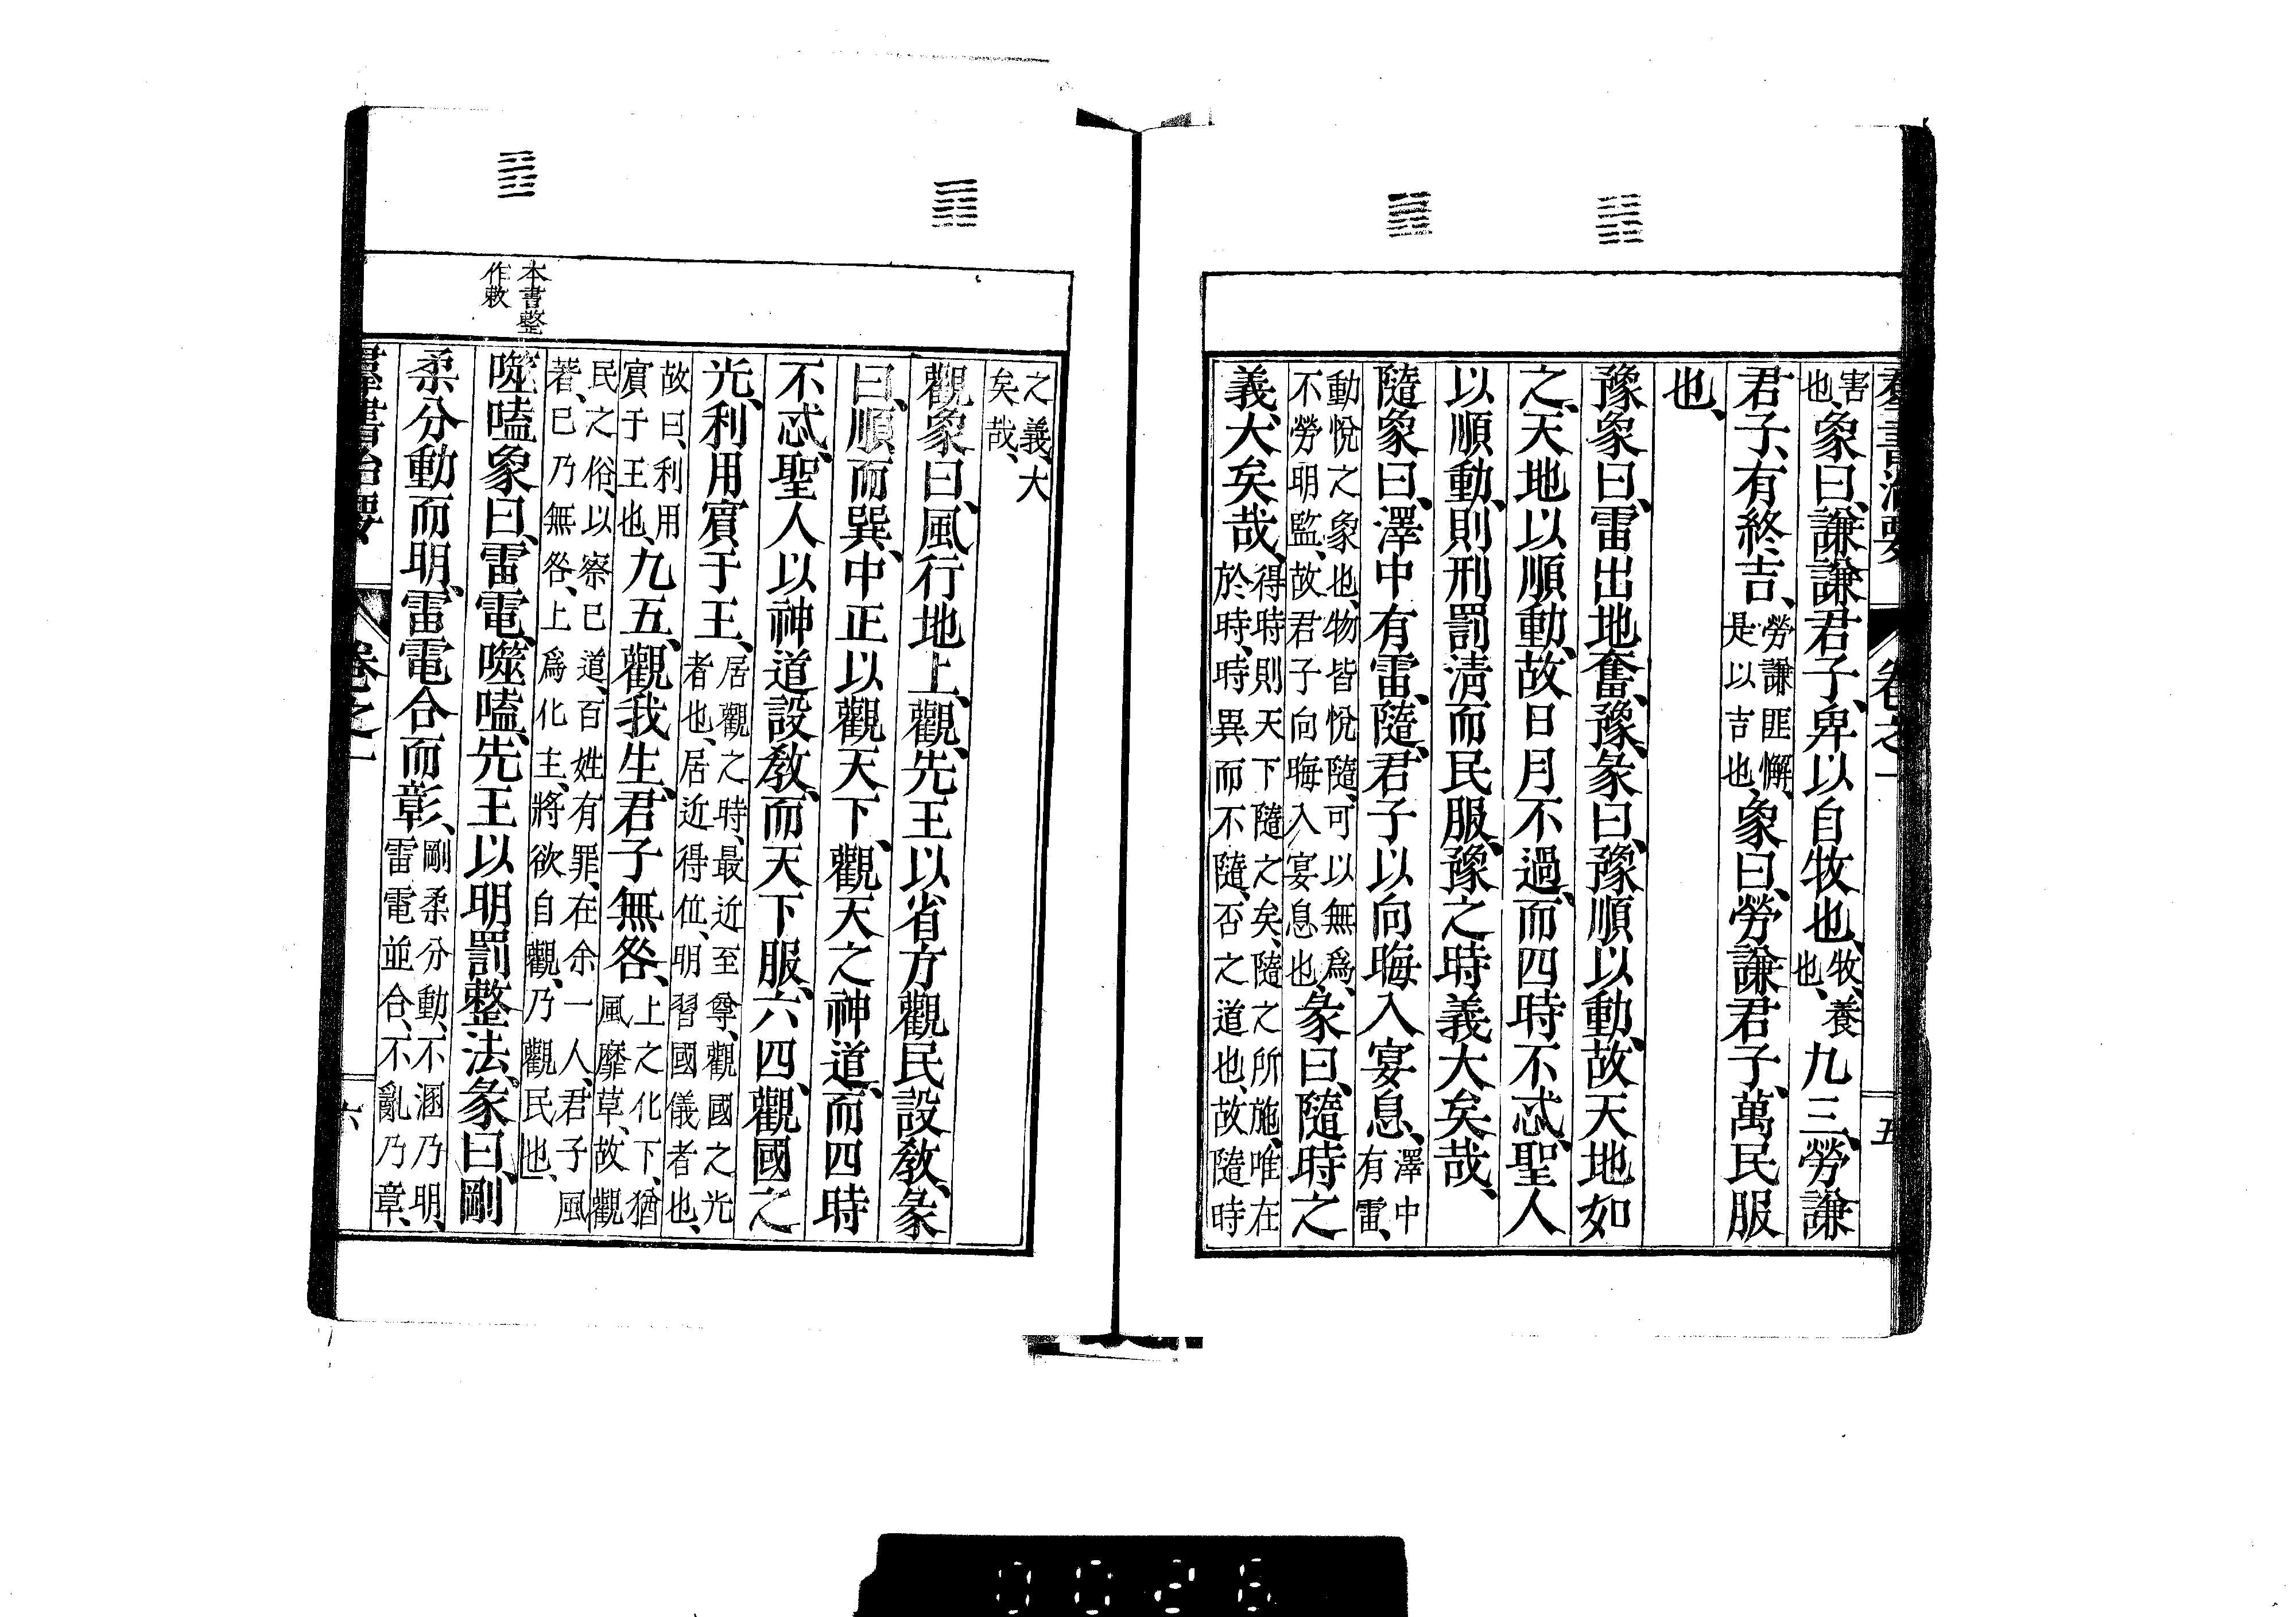 羣書治要 卷之一 五
害也、象曰、謙謙君子、卑以自牧也、牧、養也、九三、勞謙
君子、有終吉、勞謙匪懈、是以吉也、象曰、勞謙君子、萬民服
也、
豫象曰、雷出地奮、豫、彖曰、豫順以動、故天地如
之、天地以順動、故日月不過、而四時不忒、聖人
以順動、則刑罰淸而民服、豫之時義大矣哉、
隨象曰、澤中有雷、隨、君子以向晦入宴息、澤中有雷、
動悅之象也、物皆悅隨、可以無爲、不勞明監、故君子向晦入宴息也、彖曰、隨時之
義、大矣哉、得時則天下隨之矣、隨之所施、唯在於時、時異而不隨、否之道也、故隨時
之義、大矣哉、
觀象曰、風行地上、觀、先王以省方觀民設敎、彖
曰、順而巽、中正以觀天下、觀天之神道、而四時
不忒、聖人以神道設敎、而天下服、六四、觀國之
光、利用賓于王、居觀之時、最近至尊、觀國之光者也、居近得位、明習國儀者也、
故曰、利用賓于王也、九五、觀我生、君子無咎、上之化下、猶風靡草、故觀
民之俗、以察己道、百姓有罪、在余一人、君子風著、己乃無咎、上爲化主、將欲自觀、乃觀民也、
本書整作敕
噬嗑象曰、雷電、噬嗑、先王以明罰整法、彖曰、剛
柔分動而明、雷電合而彰、剛柔分動、不溷乃明、雷電並合、不亂乃章、
羣書治要 卷之一 六
0026